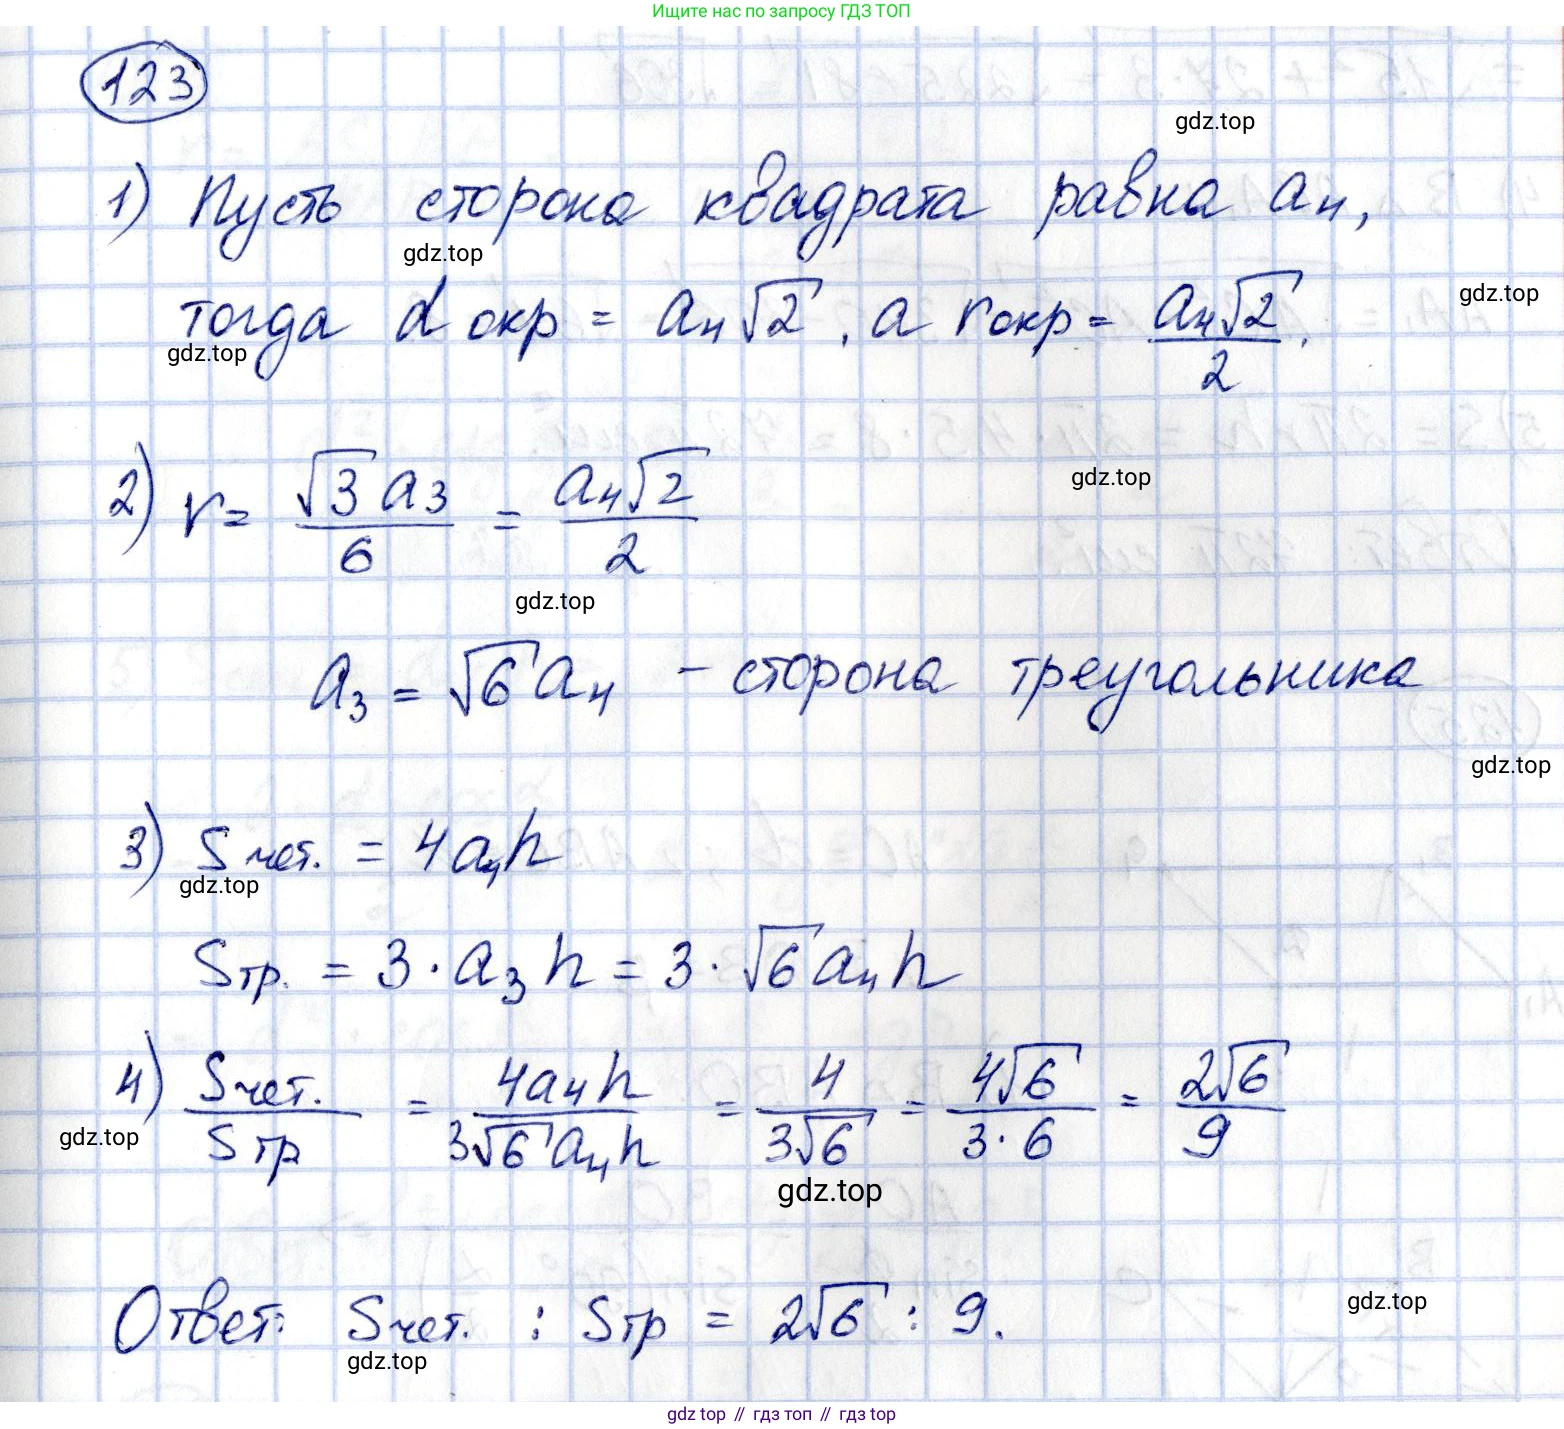 Ищите нас по запросу ГДЗ ТОП
123
gdz.top
1) Пусть сторона квадрата равна a₄,
gdz.top
тогда d окр = a₄√2, а r окр = a₄√2/2.
gdz.top
gdz.top
2) r = √3 a₃/6 = a₄√2/2
gdz.top
gdz.top
a₃ = √6 a₄ – сторона треугольника
gdz.top
3) S чет. = 4a₄h
gdz.top
Sтр. = 3·a₃h = 3·√6a₄h
4) Sчет./Sтр = 4a₄h/3√6a₄h = 4/3√6 = 4√6/3·6 = 2√6/9
gdz.top
gdz.top
gdz.top
Ответ: Sчет. : Sтр = 2√6 : 9.
gdz.top
gdz top // гдз топ // гдз top